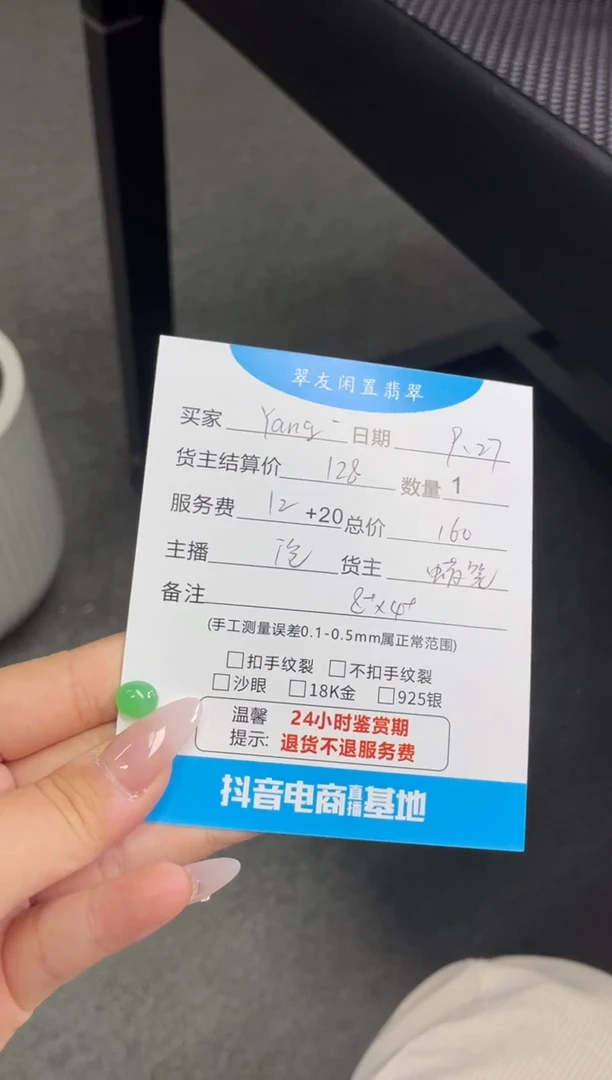 翠友闲置翡翠
买家 Yang 日期 9.27
货主结算价 128 数量 1
服务费 12 +20 总价 160
主播 货主
备注 8⁺×4⁺
(手工测量误差0.1-0.5mm属正常范围)
□扣手纹裂 □不扣手纹裂
□沙眼 □18K金 □925银
温馨 24小时鉴赏期
提示: 退货不退服务费
抖音电商直播基地